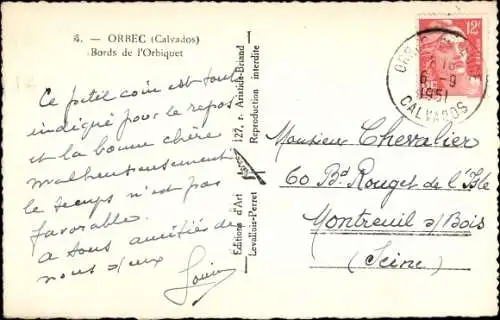 4. — ORBEC (Calvados)
Bords de l'Orbiquet
Ce petit coin est tout
indiqué pour le repos
et la bonne chère
malheureusement
le temps n'est pas
favorable.
a tous amitiés de
nous deux
Editions d'Art
Levallois-Perret
127, r. Aristide-Briand
Reproduction interdite
12F
ORBEC
6-9
1951
CALVADOS
Monsieur Chevalier
60 Bd Rouget de l'Isle
Montreuil s/Bois
(Seine)